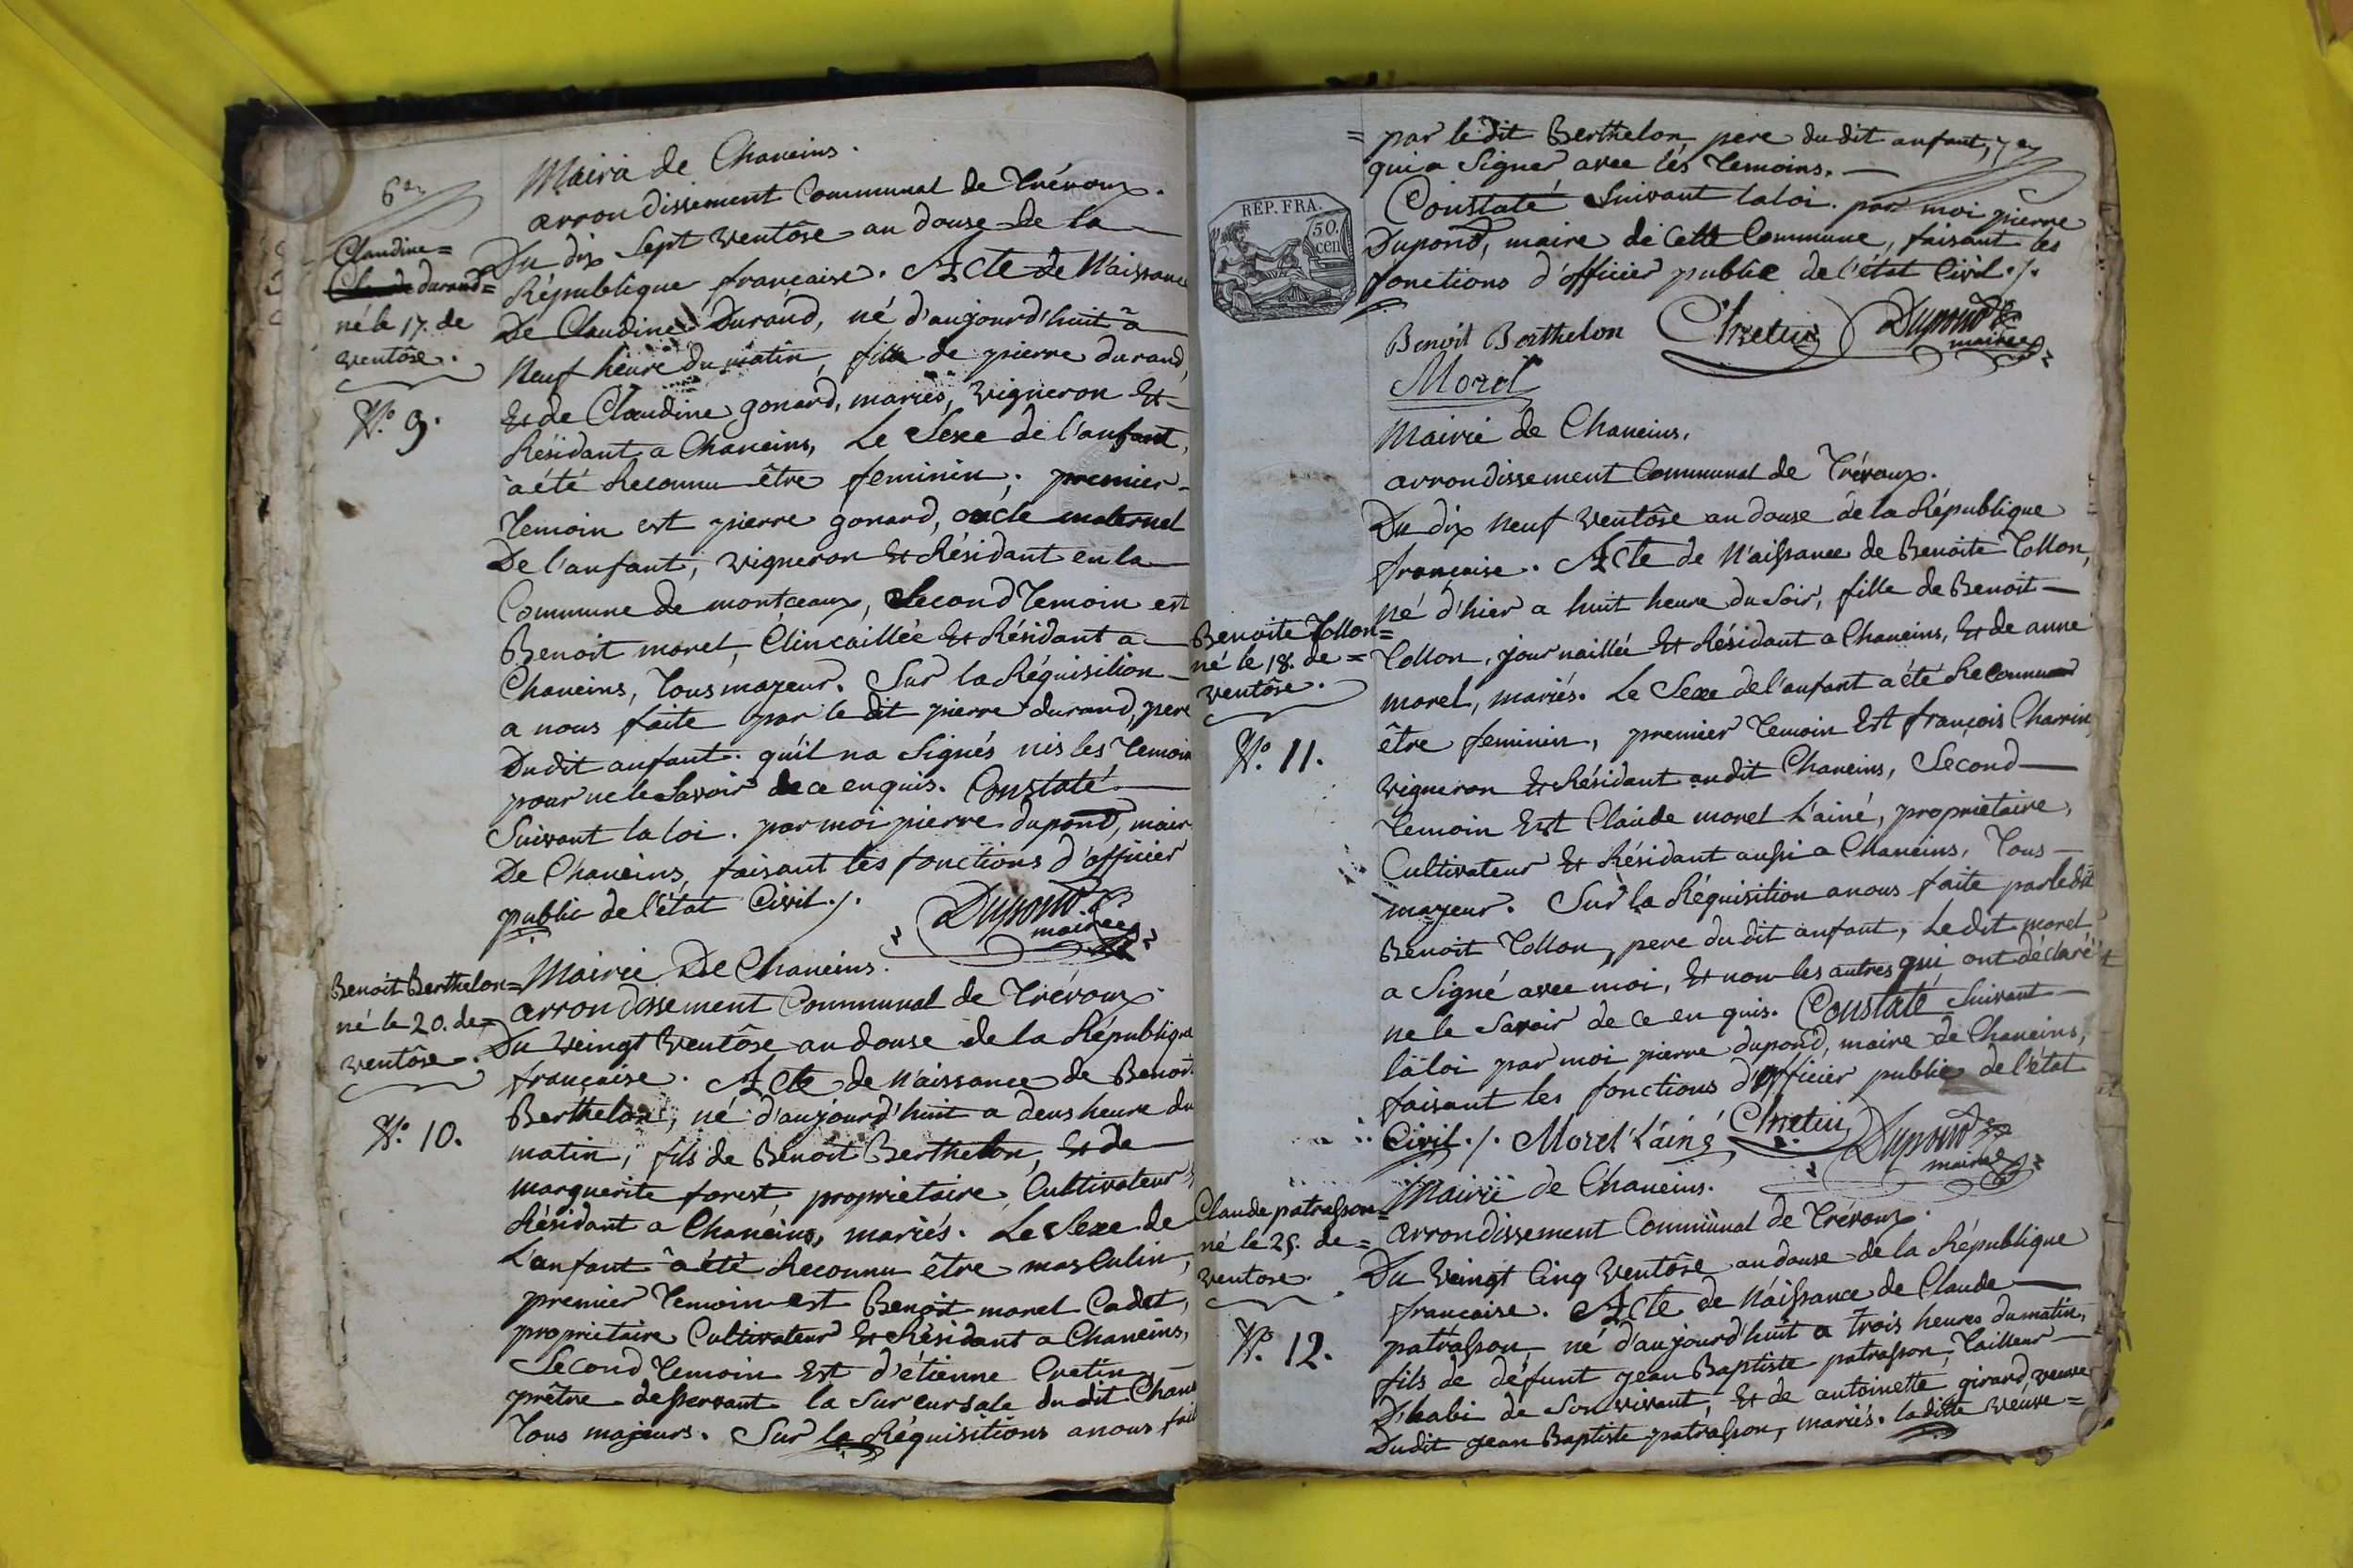 6e
Mairia de Chaneins.
arrondissement Communal de Trévoux.
Claudine=
Claude durand=
né le 17. de
ventôse.
N.o 9.
Du dix Sept ventôse an douse de la
République française. Acte de N'aissance
De Claudine Durand, né d'aujourd'huit à
Neuf heure du matin, fille de pierre durand,
Et de Claudine gonard, mariés, vigneron Et
Résidant a Chaneins, Le Sexe de l'anfant,
a été Reconnu être feminin; premier
Temoin est pierre gonard, oncle maternel
De l'anfant, vigneron Et Résidant en la
Commune de montceaux, Second Temoin est
Benoit morel, Clincaillée Et Résidant a
Chaneins, Tous mayeur. Sur la Réquisition
a nous faite par le dit pierre durand, pere
Dudit anfant. qu'il na Signés nis les Temoin
pour ne le Savoir de ce enquis. Constaté
Suivant la loi. par moi pierre dupond, mair
De Chaneins, faisant les fonctions d'officier
public de l'état Civil ./.
Dupond
maire
Benoit Berthelon=
né le 20. de=
ventôse.
N.o 10.
Mairie De Chaneins.
arrondissement Communal de Trévoux.
Du Veingt Ventôse an douse de la République
française. Acte de N'aissance de Benoit
Berthelon, né d'aujourd'huit a deus heure du
matin, fils de Benoit Berthelon, Et de
marguerite forest, propriétaire, Cultivateur,
Résidant a Chaneins, mariés. Le Sexe de
L'anfant a été Reconnu être masculin,
premier Temoin est Benoit morel Cadet,
propriétaire Cultivateur Et Résidant a Chaneins,
Second Temoin Est d'étienne Cretin,
prêtre desservant la Surcursale du dit Chane
Tous majeurs. Sur la Réquisitions a nous fait
= par le dit Berthelon, pere du dit anfant,
qui a Signer avec les Temoins.
REP. FRA.
50.
cen
Constaté Suivant la loi. par moi pierre
Dupond, maire de Cette Commune, faisant les
fonctions d'officier public de l'état Civil ./.
Benoit Berthelon Cretin Dupond
maire
Morel
Mairie de Chaneins.
arrondissement Communal de Trévoux.
Benoite Tollon=
né le 18. de=
ventôse.
N.o 11.
Du dix neuf Ventôse an douse de la République
française. Acte de N'aissance de Benoite Tollon,
né d'hier a huit heure du Soir, fille de Benoit
Tollon, journaillée Et Résidant a Chaneins, Et de anne
morel, mariés. Le Sexe de l'anfant a été Reconnu
être feminin, premier Temoin Est françois Charrin,
vigneron Et Résidant audit Chaneins, Second
Temoin Est Claude morel L'ainé, propriétaire,
Cultivateur Et Résidant aussi a Chaneins, Tous
mayeur. Sur la Réquisition a nous faite par le dit
Benoit Tollon, pere du dit anfant, Ledit morel
a Signé avec moi, Et non les autres qui ont déclaré
ne le Savoir de ce en quis. Constaté Suivant
la loi par moi pierre dupond, maire de Chaneins,
faisant les fonctions d'officier public de l'état
Civil ./. Morel L'ainé Cretin Dupond
maire
Claude patrasson=
né le 25. de=
ventose.
N.o 12.
Mairie de Chaneins.
arrondissement Communal de Trévoux.
Du Veingt Cinq Ventôse an douse de la République
française. Acte de N'aissance de Claude
patrasson, né d'aujourd'huit a Trois heures du matin,
fils de défunt jean Baptiste patrasson, Tailleur
D'habi de Son vivant, Et de antoinette girard, veuve
Dudit jean Baptiste patrasson, mariés. ladite Veuve=